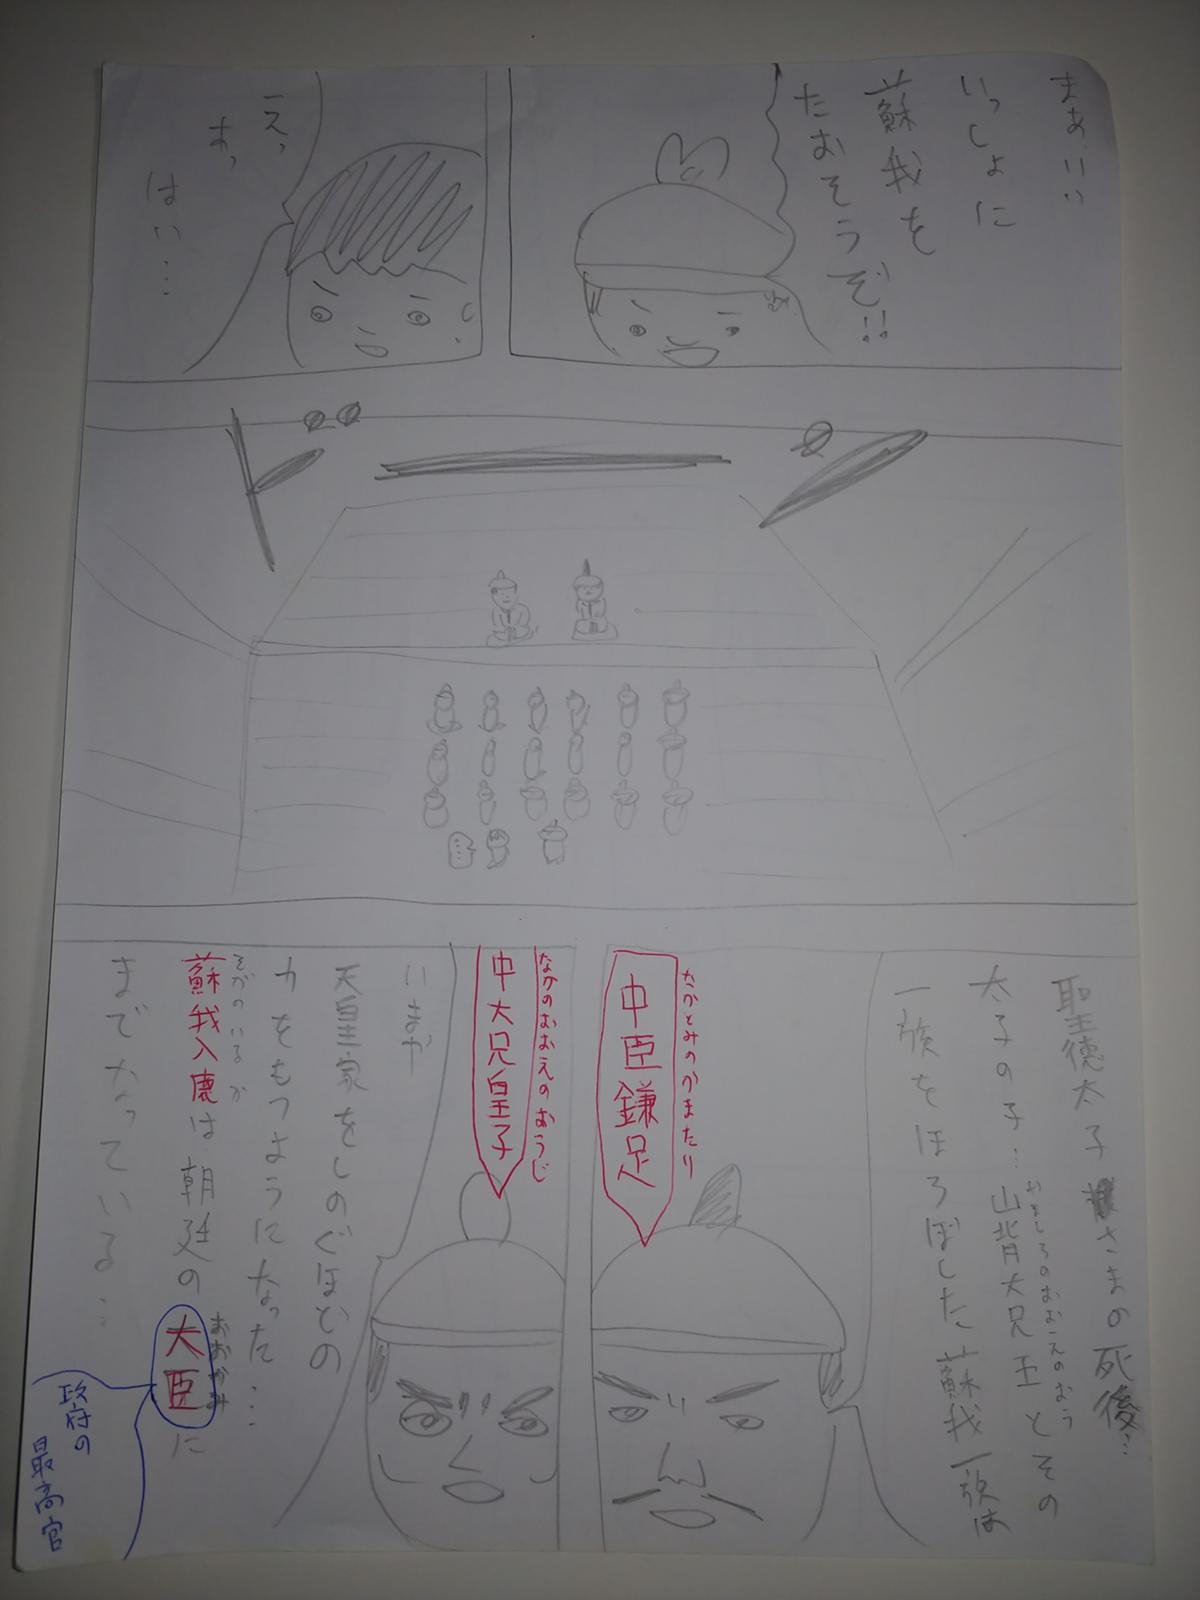 まあいい
いっしょに
蘇我を
たおそうぞ!!
えっ
あっ
はい…
聖徳太子さまの死後…
太子の子…山背大兄王とその
やましろのおおえのおう
一族をほろぼした蘇我一族は
なかとみのかまたり
中臣鎌足
なかのおおえのおうじ
中大兄皇子
いまや
天皇家をしのぐほどの
力をもつようになった…
そがのいるか
蘇我入鹿は朝廷の大臣に
おおおみ
までなっている…
政府の
最高官